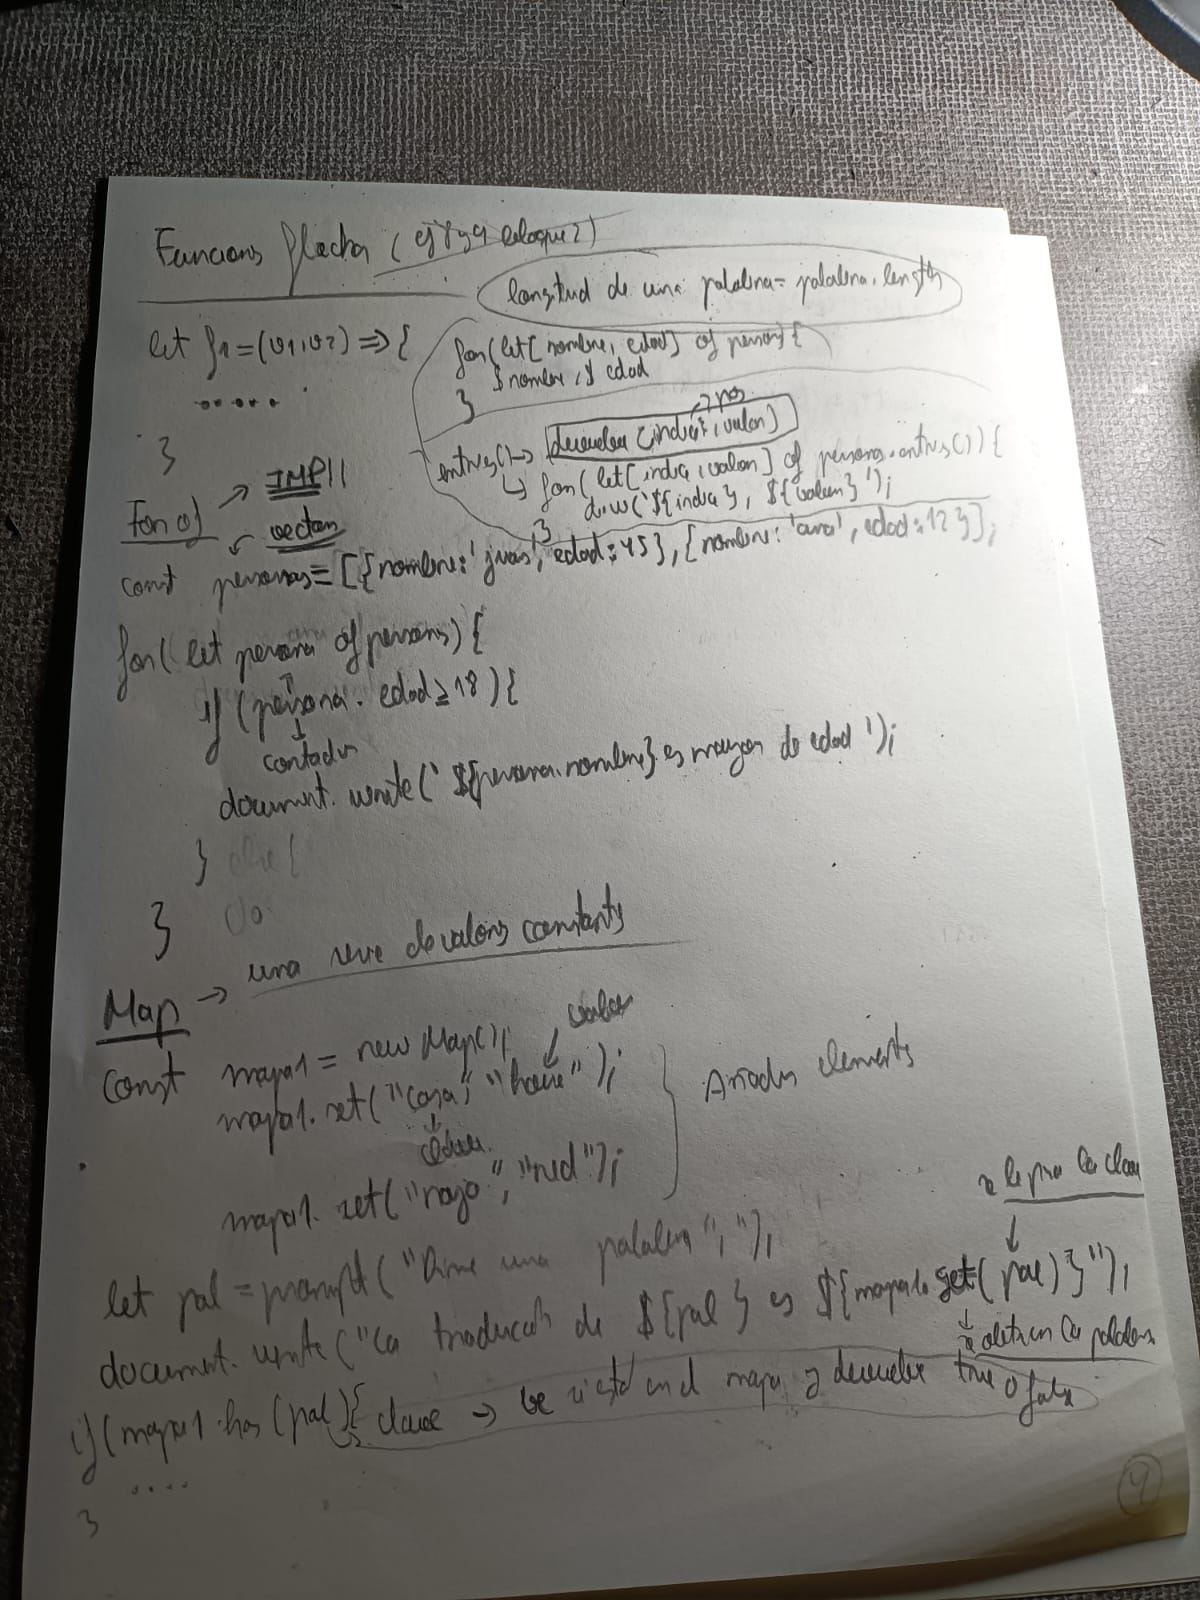 Funcions flecha (ej 8 y 9 bloque 2)
longitud de una palabra = palabra.length
let f1 = (v1, v2) => {
.....
}
for(let [nombre, edad] of person) {
$ nombre, $ edad
}
entries() → devuelve (indice, valor) → pos
↳ for (let [indice, valor] of personas.entries()) {
d.w('${indice}, ${valor}');
}
For of → IMP!!
vector
const personas = [{nombre: 'juan', edad: 45}, {nombre: 'ana', edad: 12}];
for( let persona of persons) {
if (persona. edad ≥ 18) {
contador
document. write(' ${persona.nombre} es mayor de edad ');
} else {
}
do
Map → una serie de valors constants
const mapa1 = new Map();
valor
mapa1. set("casa", "house");
clave
Añador elements
mapa1. set("rojo", "red");
se le pasa la clave
let pal = prompt("Dime una palabra", ");
document. write("La traducción de ${pal} es ${mapa1.get(pal)}");
se obtiene la palabra
if (mapa1 has (pal) { clave → ve si está en el mapa y devuelve true o false
....
}